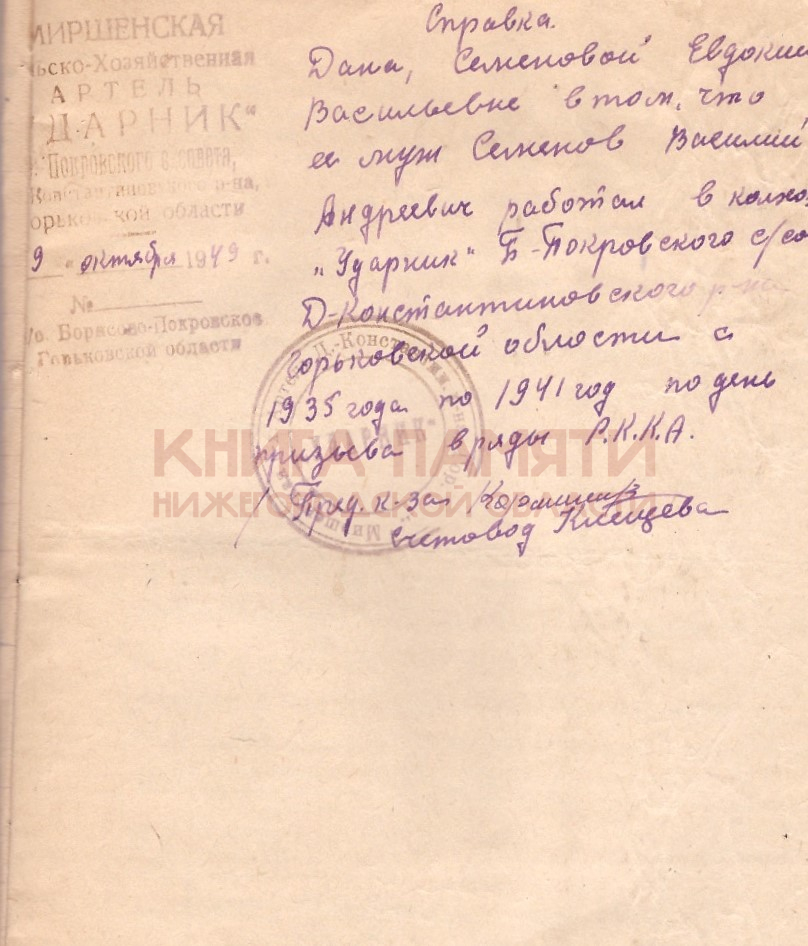 МИРШЕНСКАЯ
льско-Хозяйственная
АРТЕЛЬ
ДАРНИК"
Покровского с-совета,
Константиновского р-на,
орьковской области
9 " октября 1949 г.
№
п/о. Борисово-Покровское
Горьковской области
Справка.
Дана, Семеновой Евдокии
Васильевне в том, что
ее муж Семенов Василий
Андреевич работал в колхо
„Ударник" Б-Покровского с/со
Д-Константиновского р-на
Горьковской области с
1935 года по 1941 год по день
призыва в ряды Р.К.К.А.
Пред. к-за
Счетовод Клещева
Д.-Константин
КНИГА ПАМЯТИ
НИЖЕГОРОДСКОЙ ОБЛАСТИ